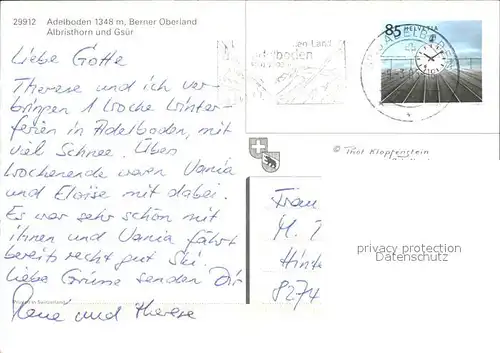 29912 Adelboden 1348 m, Berner Oberland
Albristhorn und Gsür
Liebe Gotte
Therese und ich ver-
bringen 1 Woche Winter-
ferien in Adelboden, mit
viel Schnee. Übers
Wochenende waren Vania
und Eloïse mit dabei.
Es war sehr schön mit
ihnen und Vania fährt
bereits recht gut Ski.
Liebe Grüsse senden Dir
René und Therese
Printed in Switzerland
adelboden
85 HELVETIA
ADELBODEN
© Phot Klopfenstein
Frau
M. T
Hinte
8274
privacy protection
Datenschutz